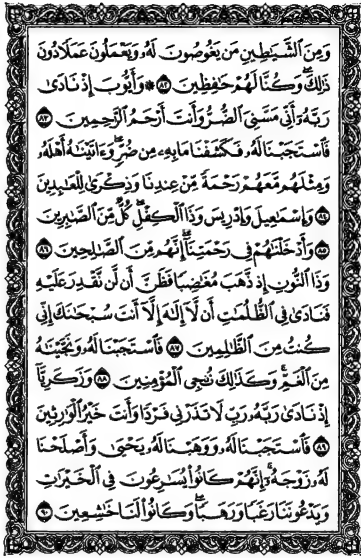 وَمِنَ الشَّيَاطِينِ مَن يَغُوصُونَ لَهُ وَيَعْمَلُونَ عَمَلًا دُونَ
ذَٰلِكَ ۖ وَكُنَّا لَهُمْ حَافِظِينَ ﴿٨٢﴾ ۞ وَأَيُّوبَ إِذْ نَادَىٰ
رَبَّهُ أَنِّي مَسَّنِيَ الضُّرُّ وَأَنتَ أَرْحَمُ الرَّاحِمِينَ ﴿٨٣﴾
فَاسْتَجَبْنَا لَهُ فَكَشَفْنَا مَا بِهِ مِن ضُرٍّ ۖ وَآتَيْنَاهُ أَهْلَهُ
وَمِثْلَهُم مَّعَهُمْ رَحْمَةً مِّنْ عِندِنَا وَذِكْرَىٰ لِلْعَابِدِينَ
﴿٨٤﴾ وَإِسْمَاعِيلَ وَإِدْرِيسَ وَذَا الْكِفْلِ ۖ كُلٌّ مِّنَ الصَّابِرِينَ
﴿٨٥﴾ وَأَدْخَلْنَاهُمْ فِي رَحْمَتِنَا ۖ إِنَّهُم مِّنَ الصَّالِحِينَ ﴿٨٦﴾
وَذَا النُّونِ إِذ ذَّهَبَ مُغَاضِبًا فَظَنَّ أَن لَّن نَّقْدِرَ عَلَيْهِ
فَنَادَىٰ فِي الظُّلُمَاتِ أَن لَّا إِلَٰهَ إِلَّا أَنتَ سُبْحَانَكَ إِنِّي
كُنتُ مِنَ الظَّالِمِينَ ﴿٨٧﴾ فَاسْتَجَبْنَا لَهُ وَنَجَّيْنَاهُ
مِنَ الْغَمِّ ۚ وَكَذَٰلِكَ نُنجِي الْمُؤْمِنِينَ ﴿٨٨﴾ وَزَكَرِيَّا
إِذْ نَادَىٰ رَبَّهُ رَبِّ لَا تَذَرْنِي فَرْدًا وَأَنتَ خَيْرُ الْوَارِثِينَ
﴿٨٩﴾ فَاسْتَجَبْنَا لَهُ وَوَهَبْنَا لَهُ يَحْيَىٰ وَأَصْلَحْنَا
لَهُ زَوْجَهُ ۚ إِنَّهُمْ كَانُوا يُسَارِعُونَ فِي الْخَيْرَاتِ
وَيَدْعُونَنَا رَغَبًا وَرَهَبًا ۖ وَكَانُوا لَنَا خَاشِعِينَ ﴿٩٠﴾